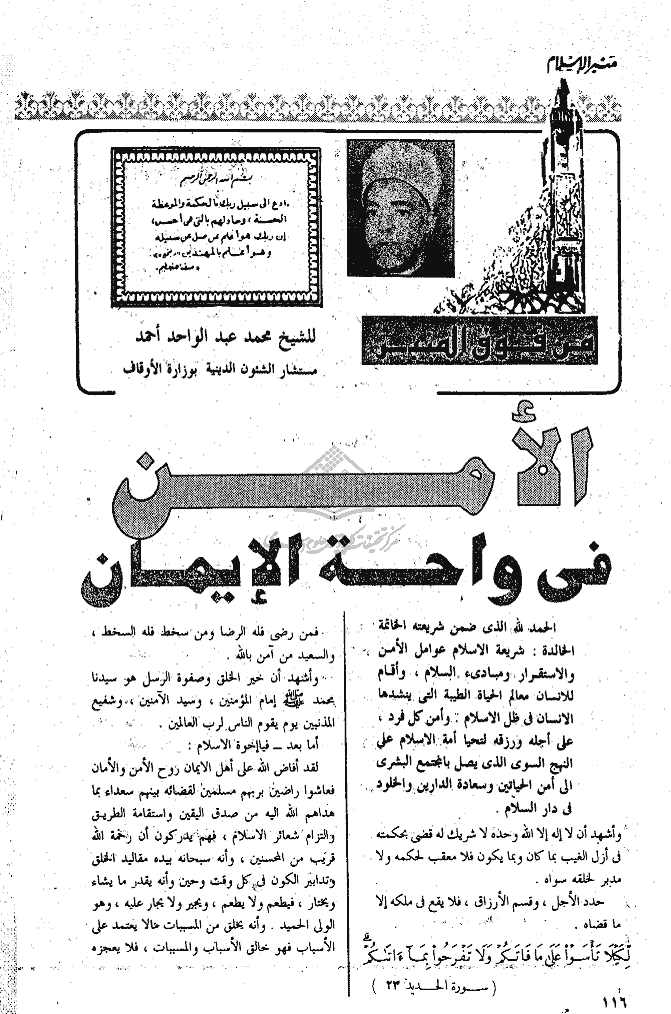 منبر الإسلام
بسم الله الرحمن الرحيم
ادع الى سبيل ربك بالحكمة والموعظة
الحسنة ، وجادلهم بالتى هى أحسن ،
إن ربك هو أعلم بمن ضل عن سبيله
وهو أعلم بالمهتدين
صدق الله العظيم
من فوق المنبر
للشيخ محمد عبد الواحد أحمد
مستشار الشئون الدينية بوزارة الأوقاف
الأمن
فى واحة الإيمان
الحمد لله الذى ضمن شريعته الخاتمة
الخالدة : شريعة الاسلام عوامل الأمن
والاستقرار ومبادىء السلام ، وأقام
للانسان معالم الحياة الطيبة التى ينشدها
الانسان فى ظل الاسلام . وأمن كل فرد ،
على أجله ورزقه لتحيا أمة الاسلام على
النهج السوى الذى يصل بالمجتمع البشرى
الى أمن الحياتين وسعادة الدارين والخلود
فى دار السلام .
وأشهد أن لا إله إلا الله وحده لا شريك له قضى بحكمته
فى أزل الغيب بما كان وبما يكون فلا معقب لحكمه ولا
مدبر لخلقه سواه .
حدد الأجل ، وقسم الأرزاق ، فلا يقع فى ملكه إلا
ما قضاه .
لِّكَيْلَا تَأْسَوْا۟ عَلَىٰ مَا فَاتَكُمْ وَلَا تَفْرَحُوا۟ بِمَآ ءَاتَىٰكُمْ
( سورة الحديد ٢٣ )
فمن رضى فله الرضا ومن سخط فله السخط ،
والسعيد من آمن بالله .
وأشهد أن خير الخلق وصفوة الرسل هو سيدنا
محمد ﷺ إمام المؤمنين ، وسيد الآمنين ، وشفيع
المذنبين يوم يقوم الناس لرب العالمين .
أما بعد ــ فياإخوة الاسلام :
لقد أفاض الله على أهل الايمان روح الأمن والأمان
فعاشوا راضين بربهم مسلمين لقضائه بينهم سعداء بما
هداهم الله اليه من صدق اليقين واستقامة الطريق
والتزام شعائر الاسلام ، فهم يدركون أن رحمة الله
قريب من المحسنين ، وأنه سبحانه بيده مقاليد الخلق
وتدابير الكون فى كل وقت وحين وأنه يقدر ما يشاء
ويختار ، فيطعم ولا يطعم ، ويجير ولا يجار عليه ، وهو
الولى الحميد . وأنه يخلق من المسببات مالا يعتمد على
الأسباب فهو خالق الأسباب والمسببات ، فلا يعجزه
١١٦